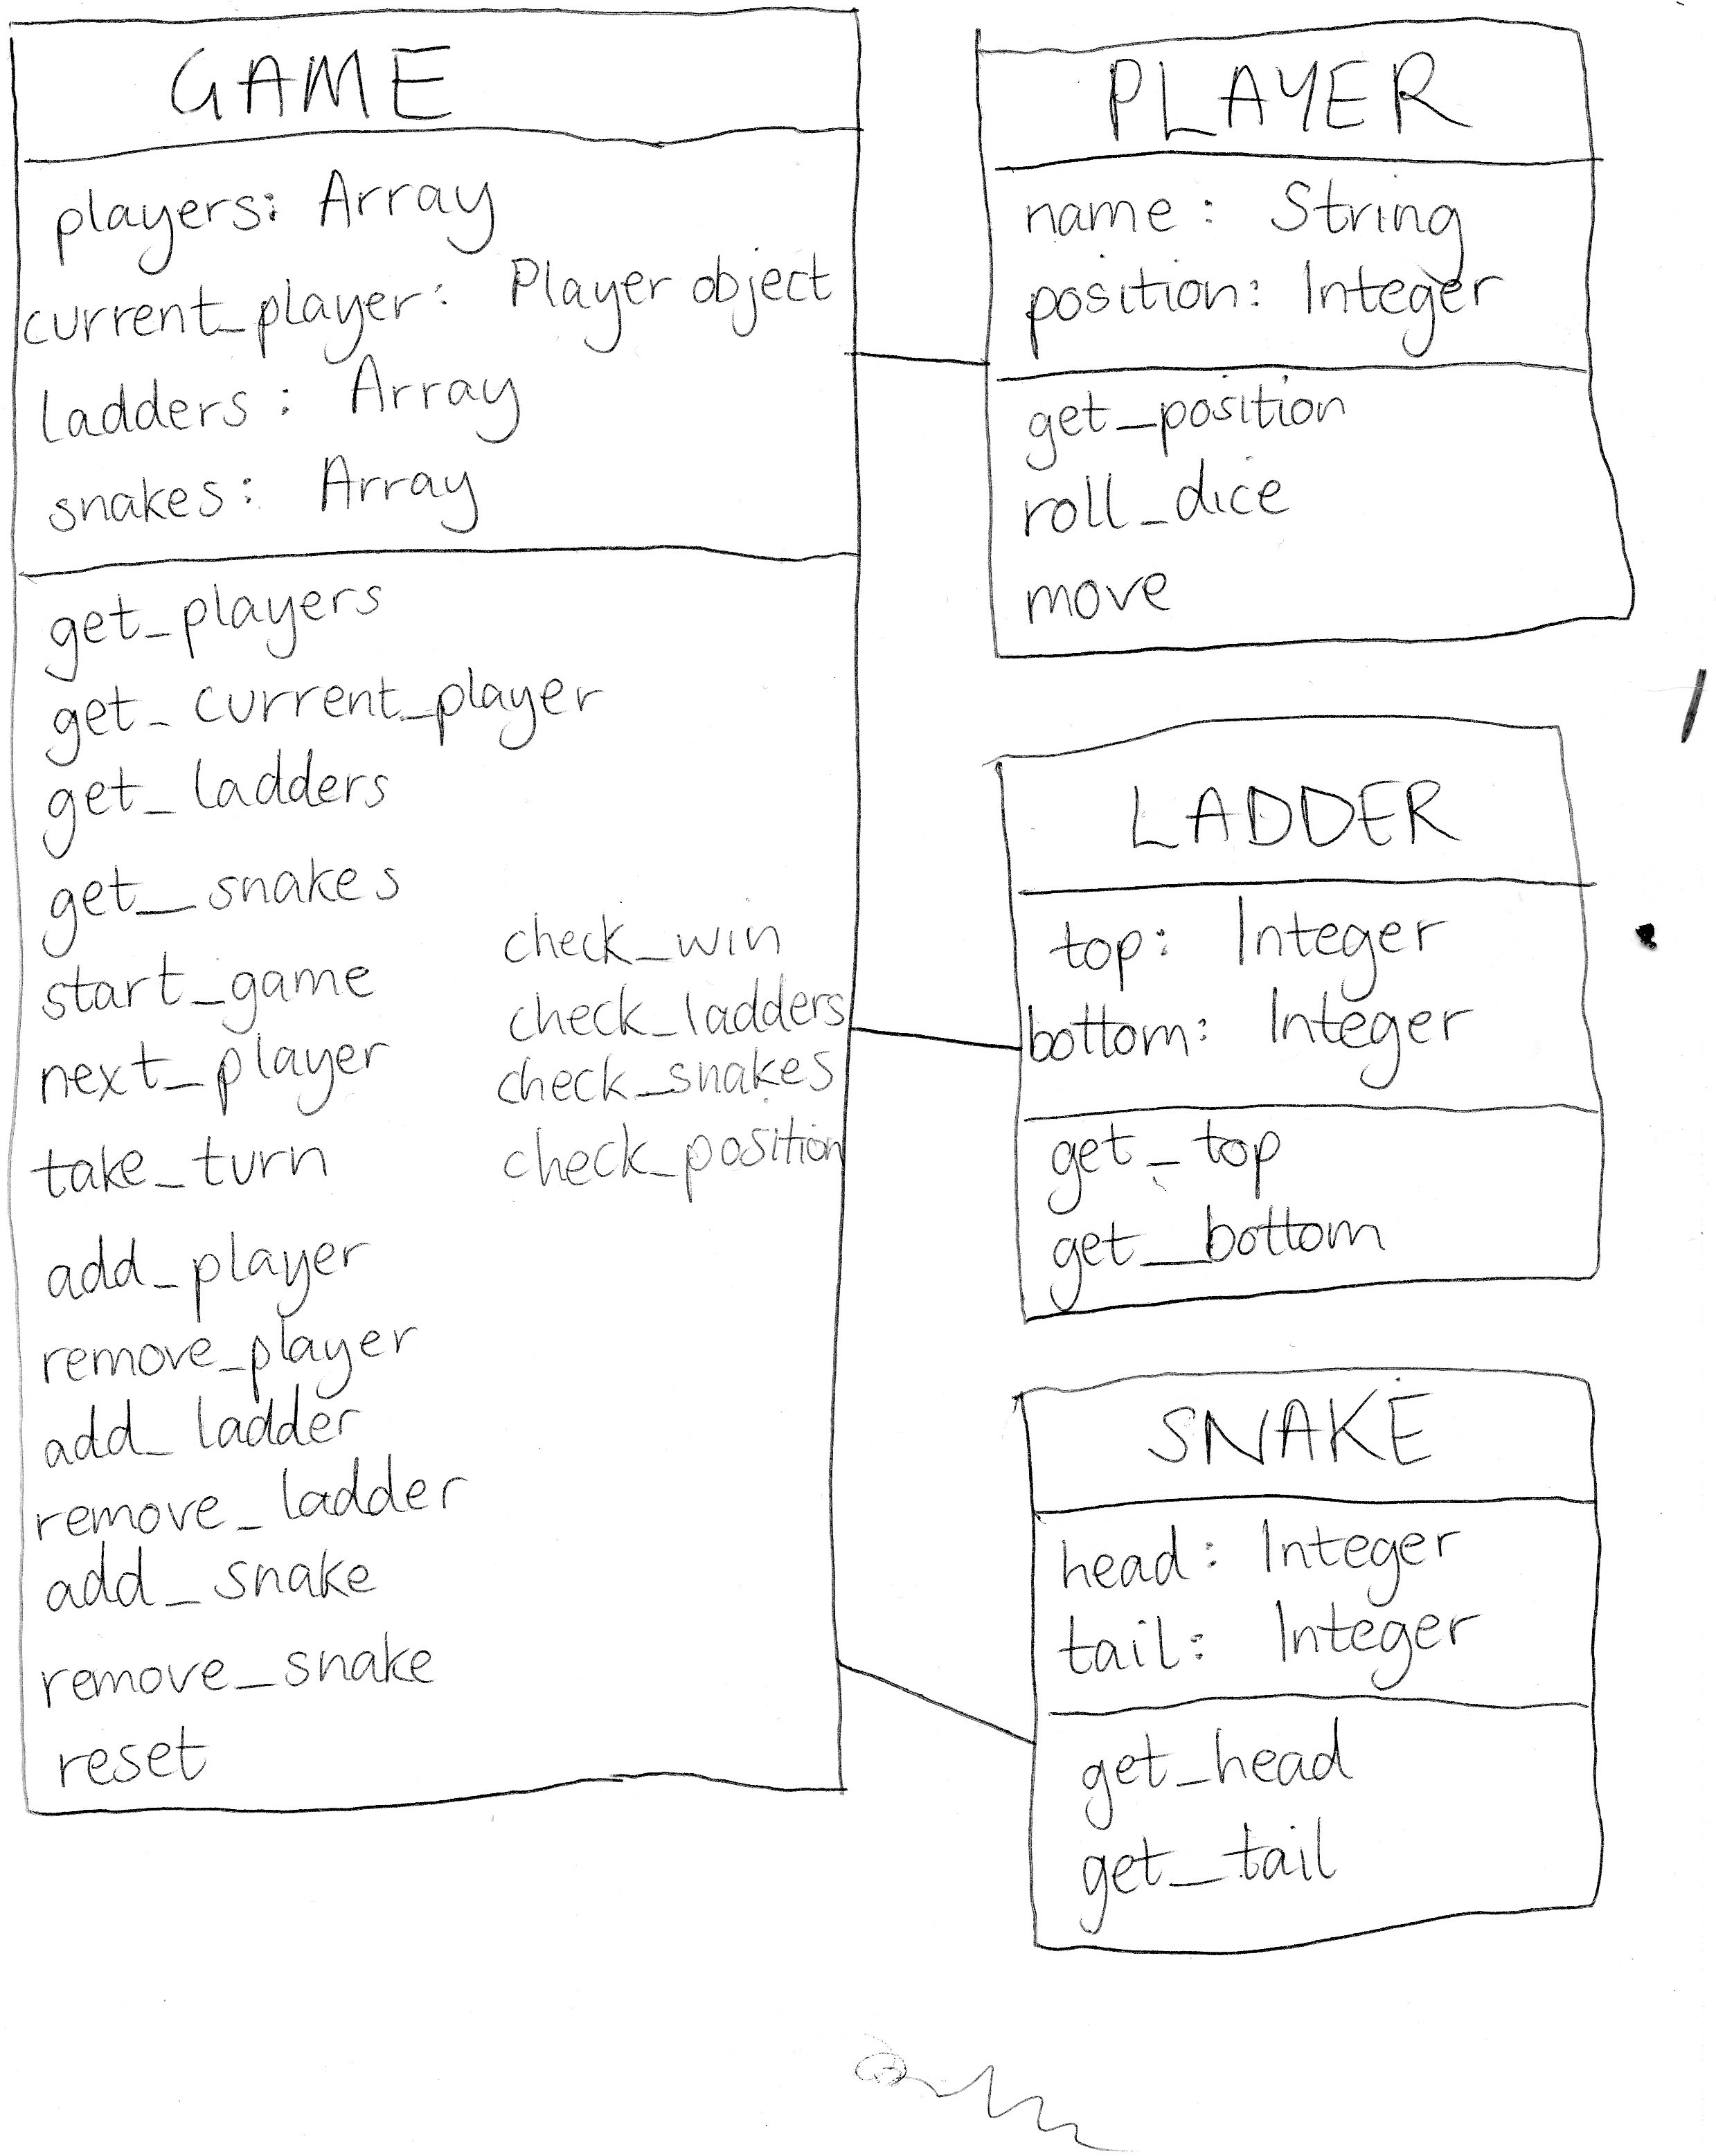 GAME
players: Array
current_player: Player object
ladders: Array
snakes: Array
get_players
get_current_player
get_ladders
get_snakes
start_game
next_player
take_turn
add_player
remove_player
add_ladder
remove_ladder
add_snake
remove_snake
reset
check_win
check_ladders
check_snakes
check_position
PLAYER
name: String
position: Integer
get_position
roll_dice
move
LADDER
top: Integer
bottom: Integer
get_top
get_bottom
SNAKE
head: Integer
tail: Integer
get_head
get_tail